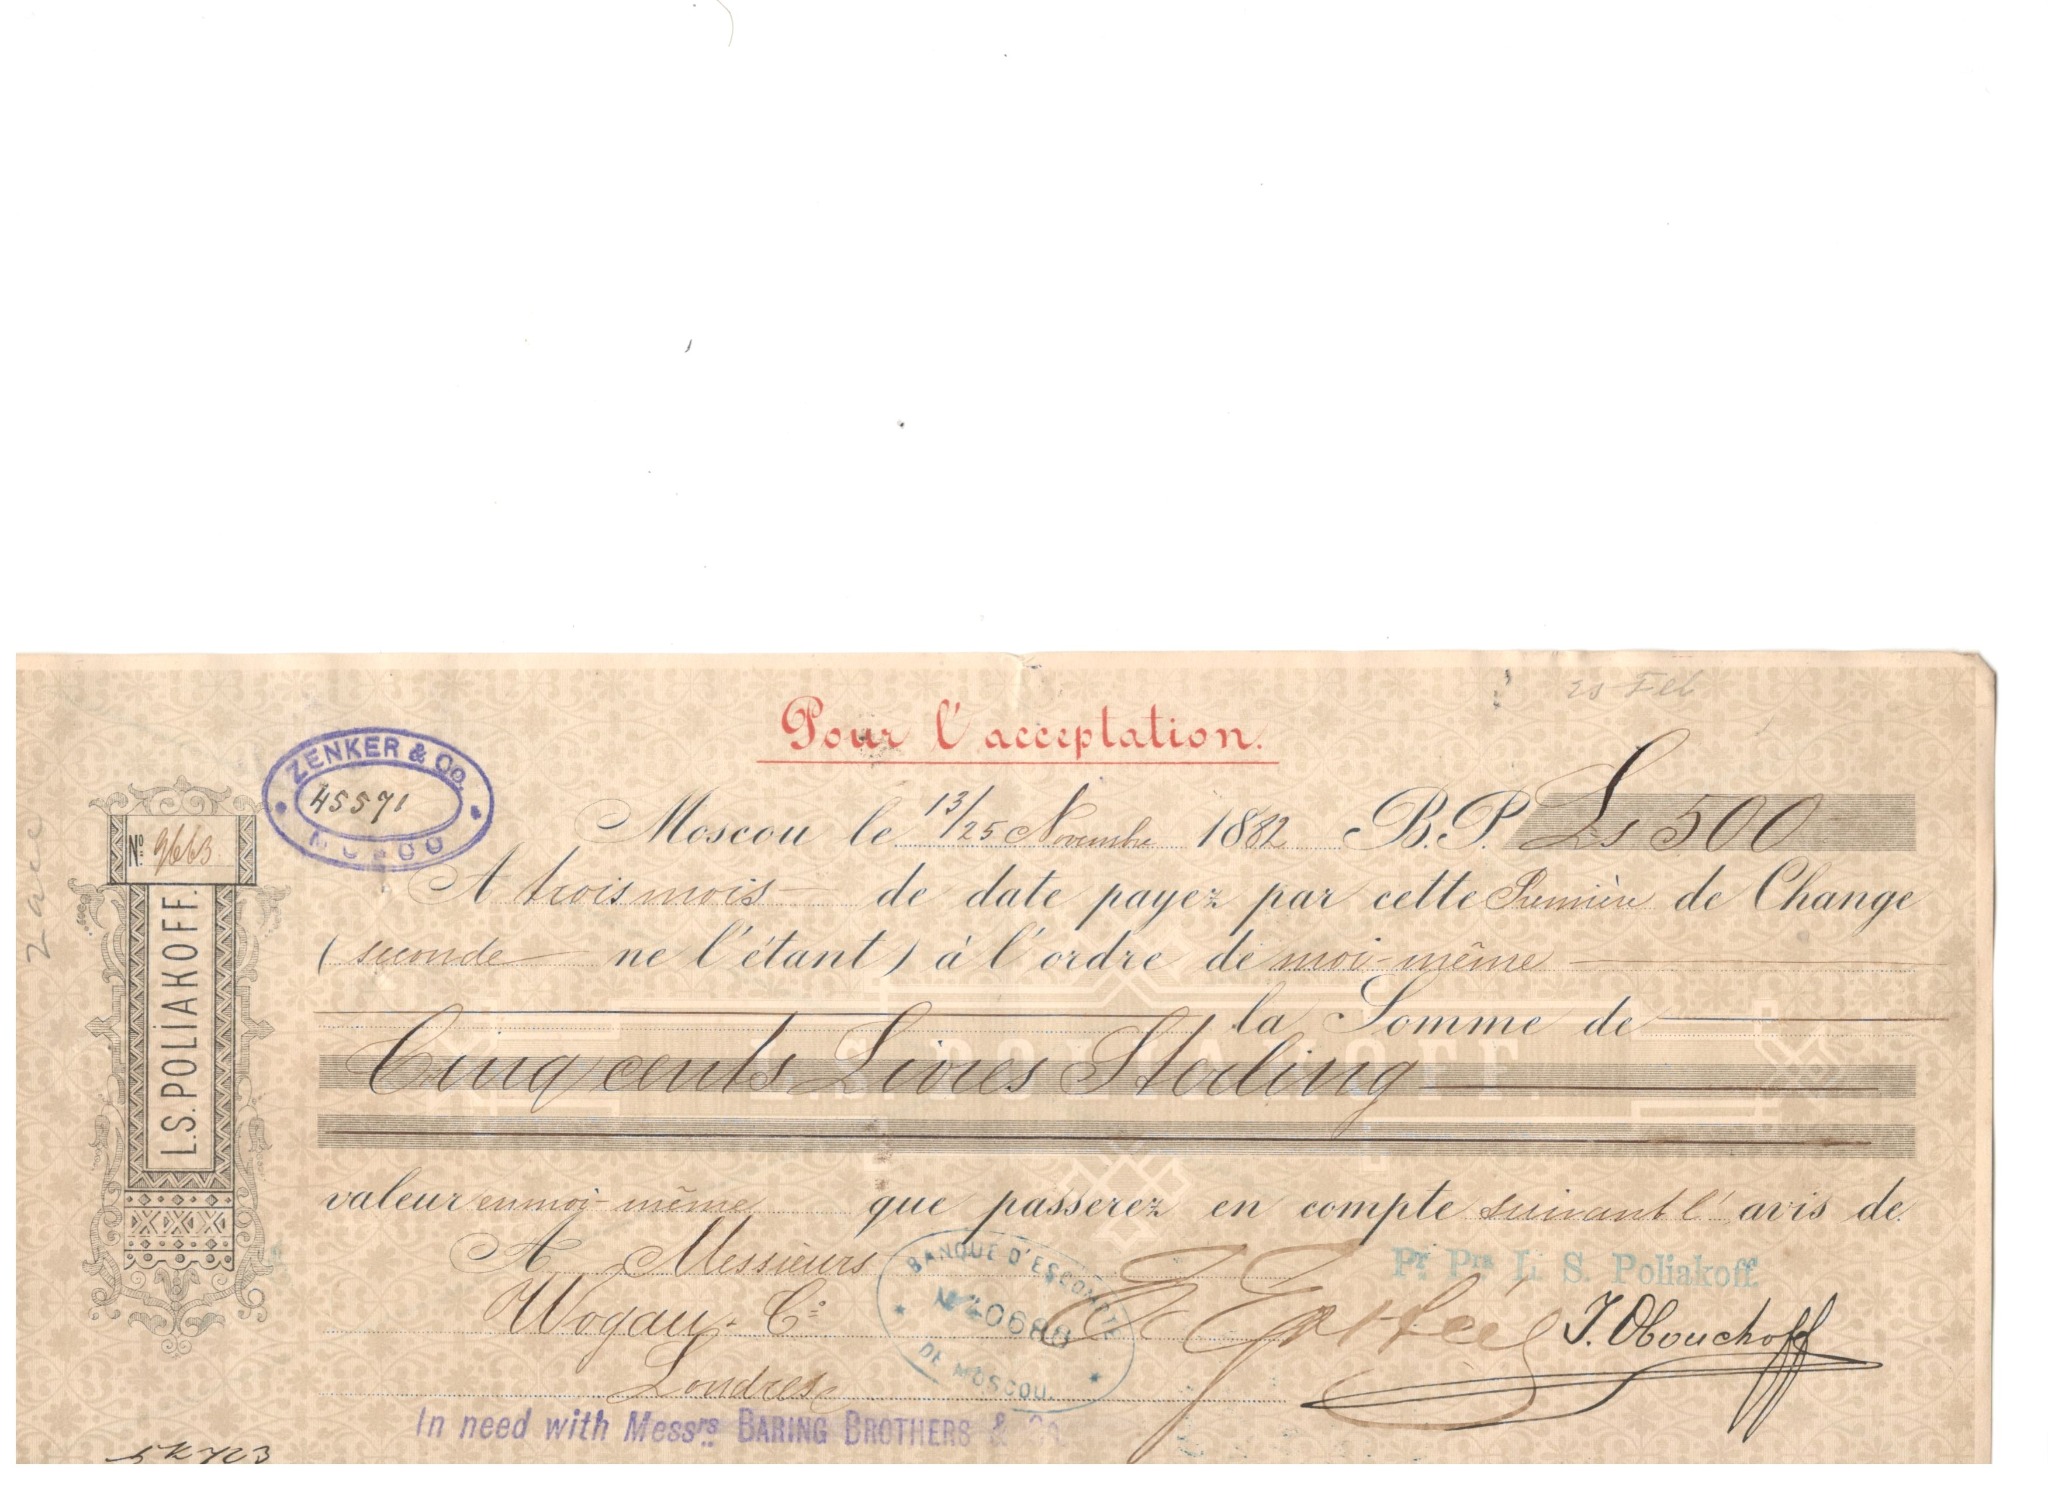 25 Feb
Pour l'acceptation.
ZENKER & Co.
45571
Nº 9663
L.S. POLIAKOFF.
Moscou le 13/25 Novembre 1882 B.P. Ls 500
A trois mois de date payez par cette Première de Change
(seconde ne l'étant) à l'ordre de moi-même
la Somme de
L.S. POLIAKOFF.
Cinq cents Livres Sterling
valeur en moi-même que passerez en compte suivant l'avis de
A Messieurs
Wogau & Cº
Londres
BANQUE D'ESCOMPTE
Nº 40688
DE MOSCOU.
Pr. Pra L. S. Poliakoff.
J. Obouchoff
In need with Messrs BARING BROTHERS & Co.